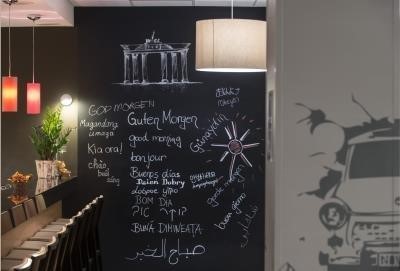 GOD MORGEN
Magandang
umaga
Guten Morgen
Kia ora!
good morning
chào
buổi
sáng
bonjour
Buenos días
Dzień Dobry
Доброе утро
BOM DIA
BUNĂ DIMINEAȚA
صباح الخير
Günaydın
goede morgen
buon giorno